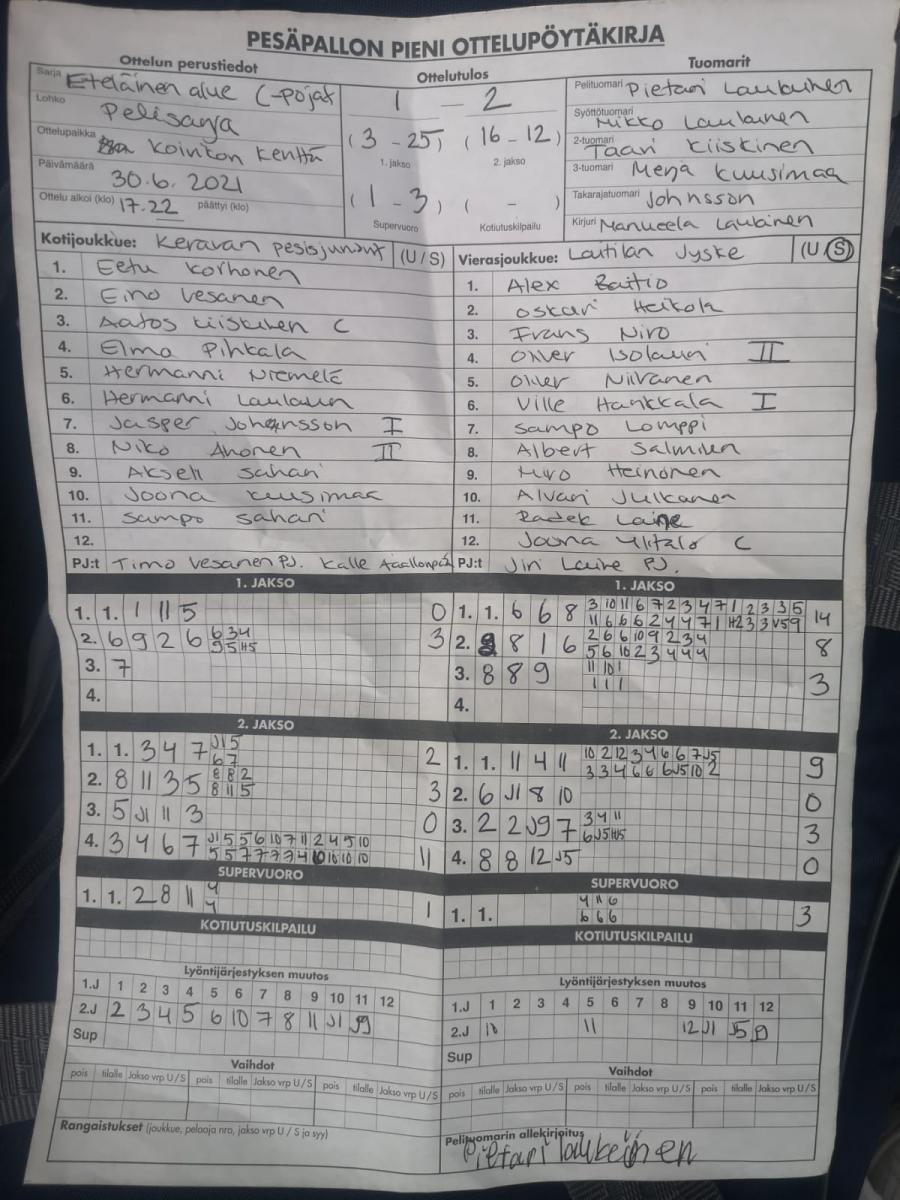 PESÄPALLON PIENI OTTELUPÖYTÄKIRJA
Ottelun perustiedot
Ottelutulos
Tuomarit
Sarja Eteläinen alue C-pojat
Lohko Pelisarja
Ottelupaikka Koivikon kenttä
Päivämäärä 30.6.2021
Ottelu alkoi (klo) 17.22 päättyi (klo)
1 - 2
(3 - 25) (16 - 12)
1. jakso 2. jakso
(1 - 3) ( - )
Supervuoro Kotiutuskilpailu
Pelituomari Pietari Laukainen
Syöttötuomari Mikko Laukainen
2-tuomari Taavi Kiiskinen
3-tuomari Merja Kuusimaa
Takarajatuomari Johnsson
Kirjuri Manuela Laukainen
Kotijoukkue: Keravan pesisjunnut (U/S)
1. Eetu Korhonen
2. Eino Vesanen
3. Aatos Kiiskinen C
4. Elmo Pihkala
5. Hermanni Niemelä
6. Hermanni
7. Jasper Johansson I
8. Niko Ahonen II
9. Akseli Sahari
10. Joona Kuusimaa
11. Sampo Sahari
12.
PJ:t Timo Vesanen PJ. Kalle
Vierasjoukkue: Laitilan Jyske (U/S)
1. Alex Raitio
2. Oskari Heikola
3. Frans Niro
4. Oliver Isolauri II
5. Oliver Niiranen
6. Ville Hankkala I
7. Sampo Lomppi
8. Albert Salminen
9. Miro Heinonen
10. Alvari Julkanen
11. Radek Laine
12. Joona Ylitalo C
PJ:t Jiri Laine PJ.
1. JAKSO
1. 1. 1 11 5 0
2. 6 9 2 6 6 3 4 3
9 5 H5
3. 7
4.
2. JAKSO
1. 1. 3 4 7 J1 5 2
6 7
2. 8 11 3 5 8 8 2 3
8 11 5
3. 5 J1 11 3 0
4. 3 4 6 7 J1 5 5 6 10 7 11 2 4 5 10 11
5 5 7 7 7 7 4 10 10 10 10
SUPERVUORO
1. 1. 2 8 11 4 1
4
KOTIUTUSKILPAILU
1. JAKSO
1. 1. 6 6 8 3 10 11 6 7 2 3 4 7 1 2 3 3 5 14
11 6 6 6 2 4 4 7 1 H2 3 3 V5 9
2. 8 1 6 2 6 6 10 9 2 3 4 8
5 6 10 2 3 4 4 4
3. 8 8 9 11 10 1 3
1 1 1
4.
2. JAKSO
1. 1. 11 4 11 10 2 12 3 4 6 6 7 J5 9
3 3 4 6 6 6 J5 10 2
2. 6 J1 8 10 0
3. 2 2 J9 7 3 4 11 3
6 J5 H5
4. 8 8 12 J5 0
SUPERVUORO
1. 1. 4 11 6 3
6 6 6
KOTIUTUSKILPAILU
Lyöntijärjestyksen muutos
1.J 1 2 3 4 5 6 7 8 9 10 11 12
2.J 2 3 4 5 6 10 7 8 11 J1 J9
Sup
Vaihdot
pois tilalle Jakso vrp U/S pois tilalle Jakso vrp U/S pois tilalle Jakso vrp U/S
Rangaistukset (joukkue, pelaaja nro, jakso vrp U / S ja syy)
Lyöntijärjestyksen muutos
1.J 1 2 3 4 5 6 7 8 9 10 11 12
2.J 10 11 12 J1 J5 J9
Sup
Vaihdot
pois tilalle Jakso vrp U/S pois tilalle Jakso vrp U/S pois tilalle Jakso vrp U/S
Pelituomarin allekirjoitus
Pietari Laukainen